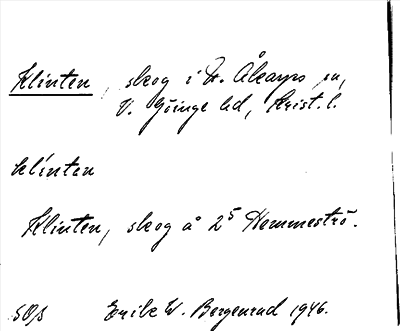 Klinten, skog i N. Åkarps sn,
V. Göinge hd, Krist. l.
klinten
Klinten, skog å 2⁵ Hommeströ.
SOs Erik W. Bergenrud 1946.